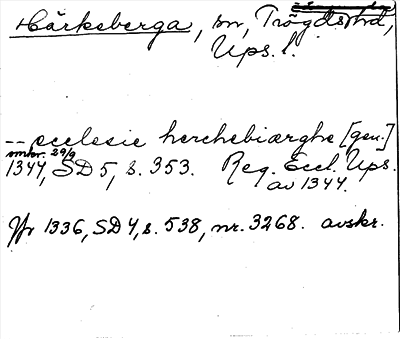 Härkeberga, sn, Trögds hd,
Ups. l.
-- ecclesie herchebiærghe [gen.]
omkr. 29/9
1344, SD 5, s. 353. Reg. Eccl. Ups.
av 1344.
Jfr 1336, SD 4, s. 538, nr. 3268. avskr.